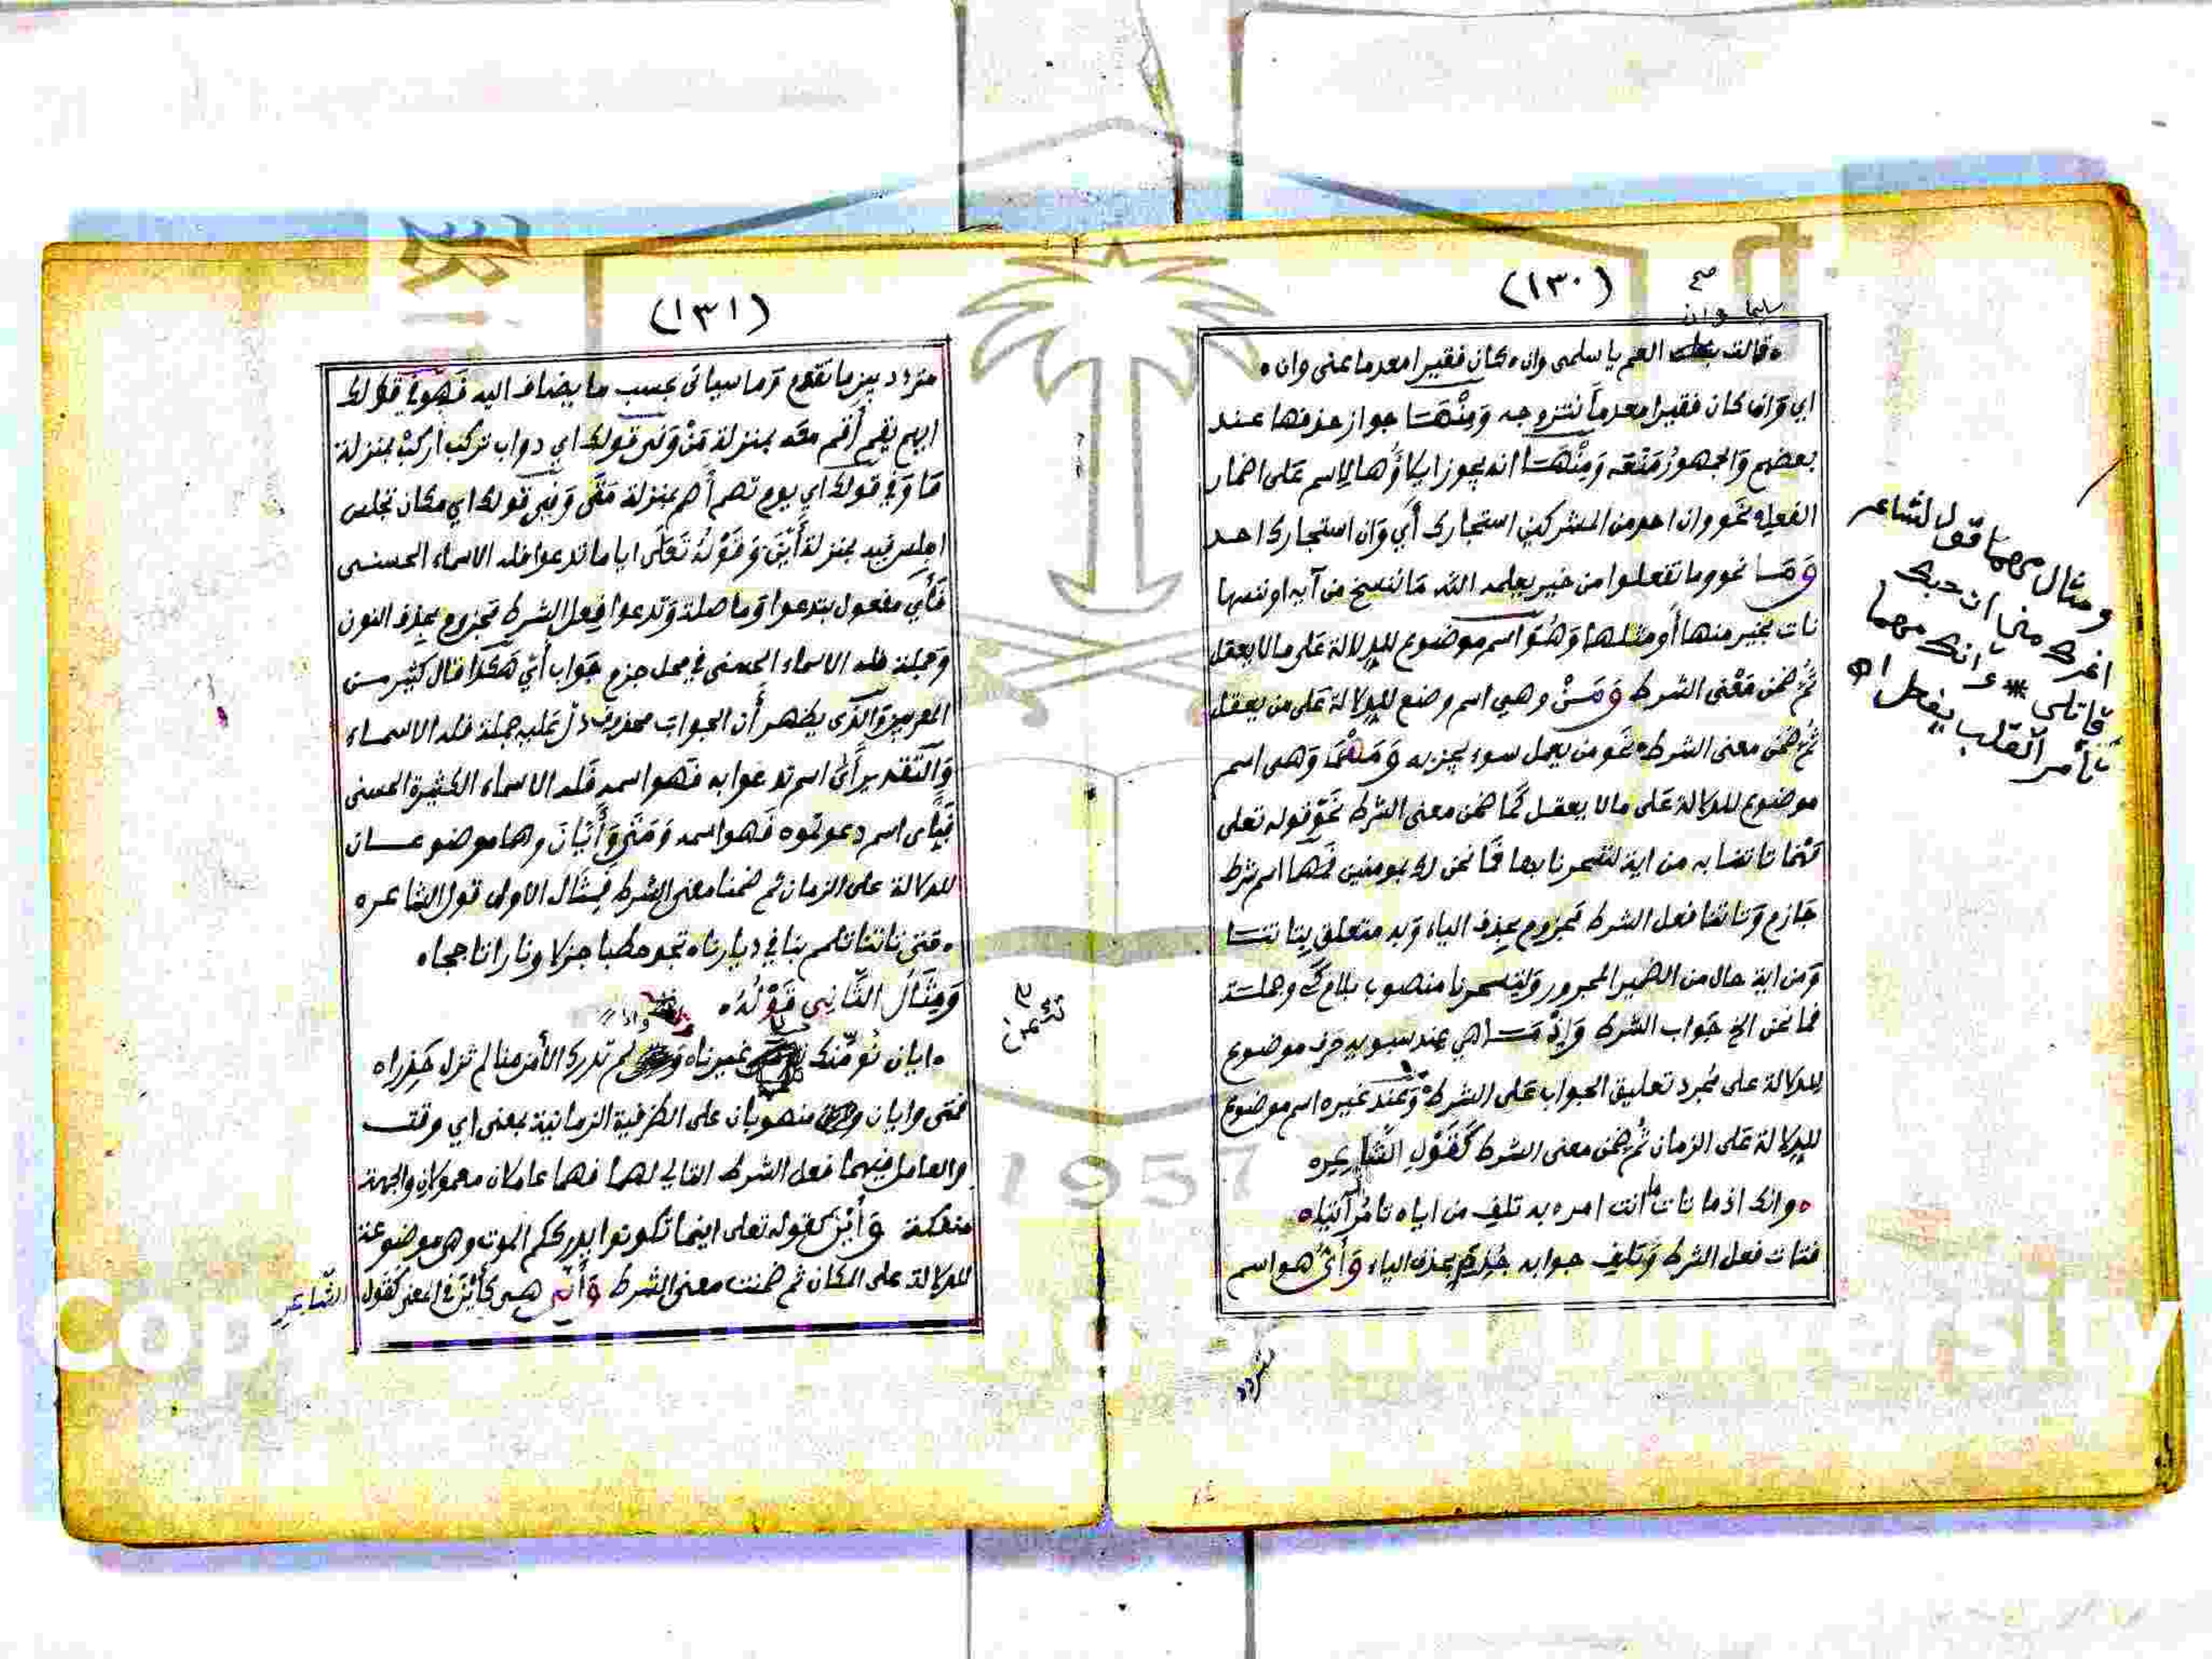 (١٣٠)
صح
سليما وان
قالت العم يا سلمى وان كان فقيرا معدما عنى وان
اي وان كان فقيرا معدما نتزوجه ومنها جواز حذفها عند
بعضهم والجمهور منعه ومنها انه يجوز ايلاؤها لاسم على اضمار
الفعل نحو وان احد من المشركين استجارك أي وان استجارك احد
وما نحو وما تفعلوا من خير يعلمه الله ما ننسخ من آية او ننسها
نات بخير منها أو مثلها وهو اسم موضوع للدلالة على ما لا يعقل
ثم ضمن معنى الشرط ومن وهي اسم وضع للدلالة على من يعقل
ثم ضمن معنى الشرط نحو من يعمل سوء يجز به ومهما وهى اسم
موضوع للدلالة على مالا يعقل كما ضمن معنى الشرط نحو قوله تعلى
مهما تاتنا به من اية لتسحرنا بها فما نحن لك بمومنين فمهما اسم شرط
جازم وتاتنا فعل الشرط مجزوم بحذف الياء وبه متعلق بتاتنا
ومن اية حال من الضمير المجرور ولتسحرنا منصوب بلام كي وجملة
فما نحن الخ جواب الشرط وإذ ما هي عند سبويه حرف موضوع
للدلالة على مجرد تعليق الجواب على الشرط وعند غيره اسم موضوع
للدلالة على الزمان ثم ضمن معنى الشرط كقول الشاعر
وانك اذما تات ما انت امر به تلف من اياه تامر آتيا
فتات فعل الشرط وتلف جوابه جزم بحذف الياء وأي هو اسم
متردد
ومثال مهما قول الشاعر
اغرك مني ان حبك
قاتلي * وانك مهما
تأمر القلب يفعل اه
(١٣١)
متردد بين ما تقدم وما سياتى بحسب ما يضاف اليه فهو في قولك
ايهم يقم أقم معه بمنزلة من وفي قولك اي دواب تركب أركب بمنزلة
ما وفي قولك اي يوم تصم أصم بمنزلة متى وفي قولك اي مكان تجلس
اجلس فيه بمنزلة أين وقوله تعلى ايا ما تدعوا فله الاسماء الحسنى
فأي مفعول بتدعوا وما صلة وتدعوا فعل الشرط مجزوم بحذف النون
وجملة فله الاسماء الحسنى في محل جزم جواب أي هكذا قال كثير من
المعربين والذى يظهر أن الجواب محذوف دل عليه جملة فله الاسماء
والتقدير أي اسم تدعوا به فهو اسمه فله الاسماء الكثيرة الحسنى
فبأي اسم دعوتموه فهو اسمه ومتى وأيان وهما موضوعان
للدلالة على الزمان ثم ضمنا معنى الشرط فمثال الاولى قول الشاعر
متى تاتنا تلمم بنا في ديارنا تجد حطبا جزلا ونارا تاججا
ومثال الثاني قوله
واذا
ايان نؤمنك تامن غيرنا لم تدرك الأمن منا لم تزل حذرا
فمتى وايان منصوبان على الظرفية الزمانية بمعنى اي وقت
والعامل فيهما فعل الشرط التالي لهما فهما عاملان معمولان والجهة
منفكة وأين كقوله تعلى اينما تكونوا يدرككم الموت وهي موضوعة
للدلالة على المكان ثم ضمنت معنى الشرط وأنى هي كأين في المعنى كقول الشاعر